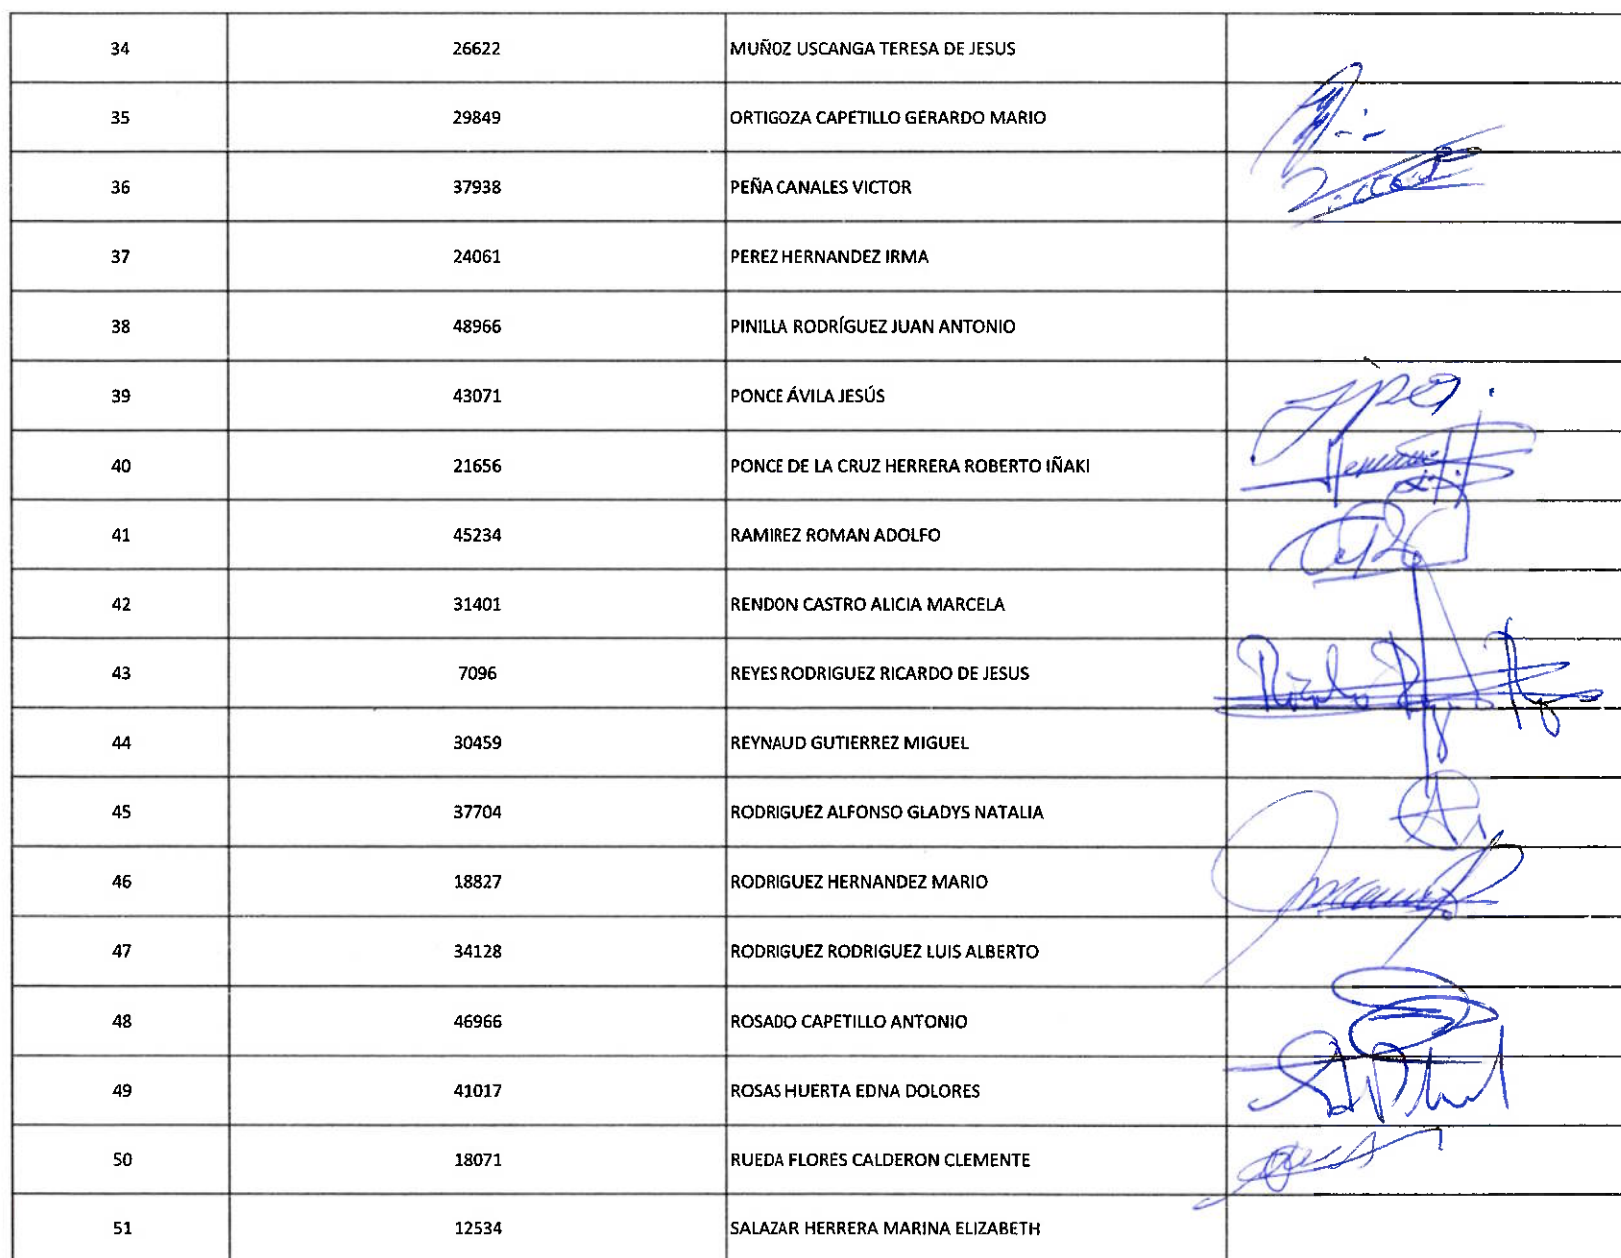 34 26622 MUÑOZ USCANGA TERESA DE JESUS
35 29849 ORTIGOZA CAPETILLO GERARDO MARIO
36 37938 PEÑA CANALES VICTOR
37 24061 PEREZ HERNANDEZ IRMA
38 48966 PINILLA RODRÍGUEZ JUAN ANTONIO
39 43071 PONCE ÁVILA JESÚS
40 21656 PONCE DE LA CRUZ HERRERA ROBERTO IÑAKI
41 45234 RAMIREZ ROMAN ADOLFO
42 31401 RENDON CASTRO ALICIA MARCELA
43 7096 REYES RODRIGUEZ RICARDO DE JESUS
44 30459 REYNAUD GUTIERREZ MIGUEL
45 37704 RODRIGUEZ ALFONSO GLADYS NATALIA
46 18827 RODRIGUEZ HERNANDEZ MARIO
47 34128 RODRIGUEZ RODRIGUEZ LUIS ALBERTO
48 46966 ROSADO CAPETILLO ANTONIO
49 41017 ROSAS HUERTA EDNA DOLORES
50 18071 RUEDA FLORES CALDERON CLEMENTE
51 12534 SALAZAR HERRERA MARINA ELIZABETH